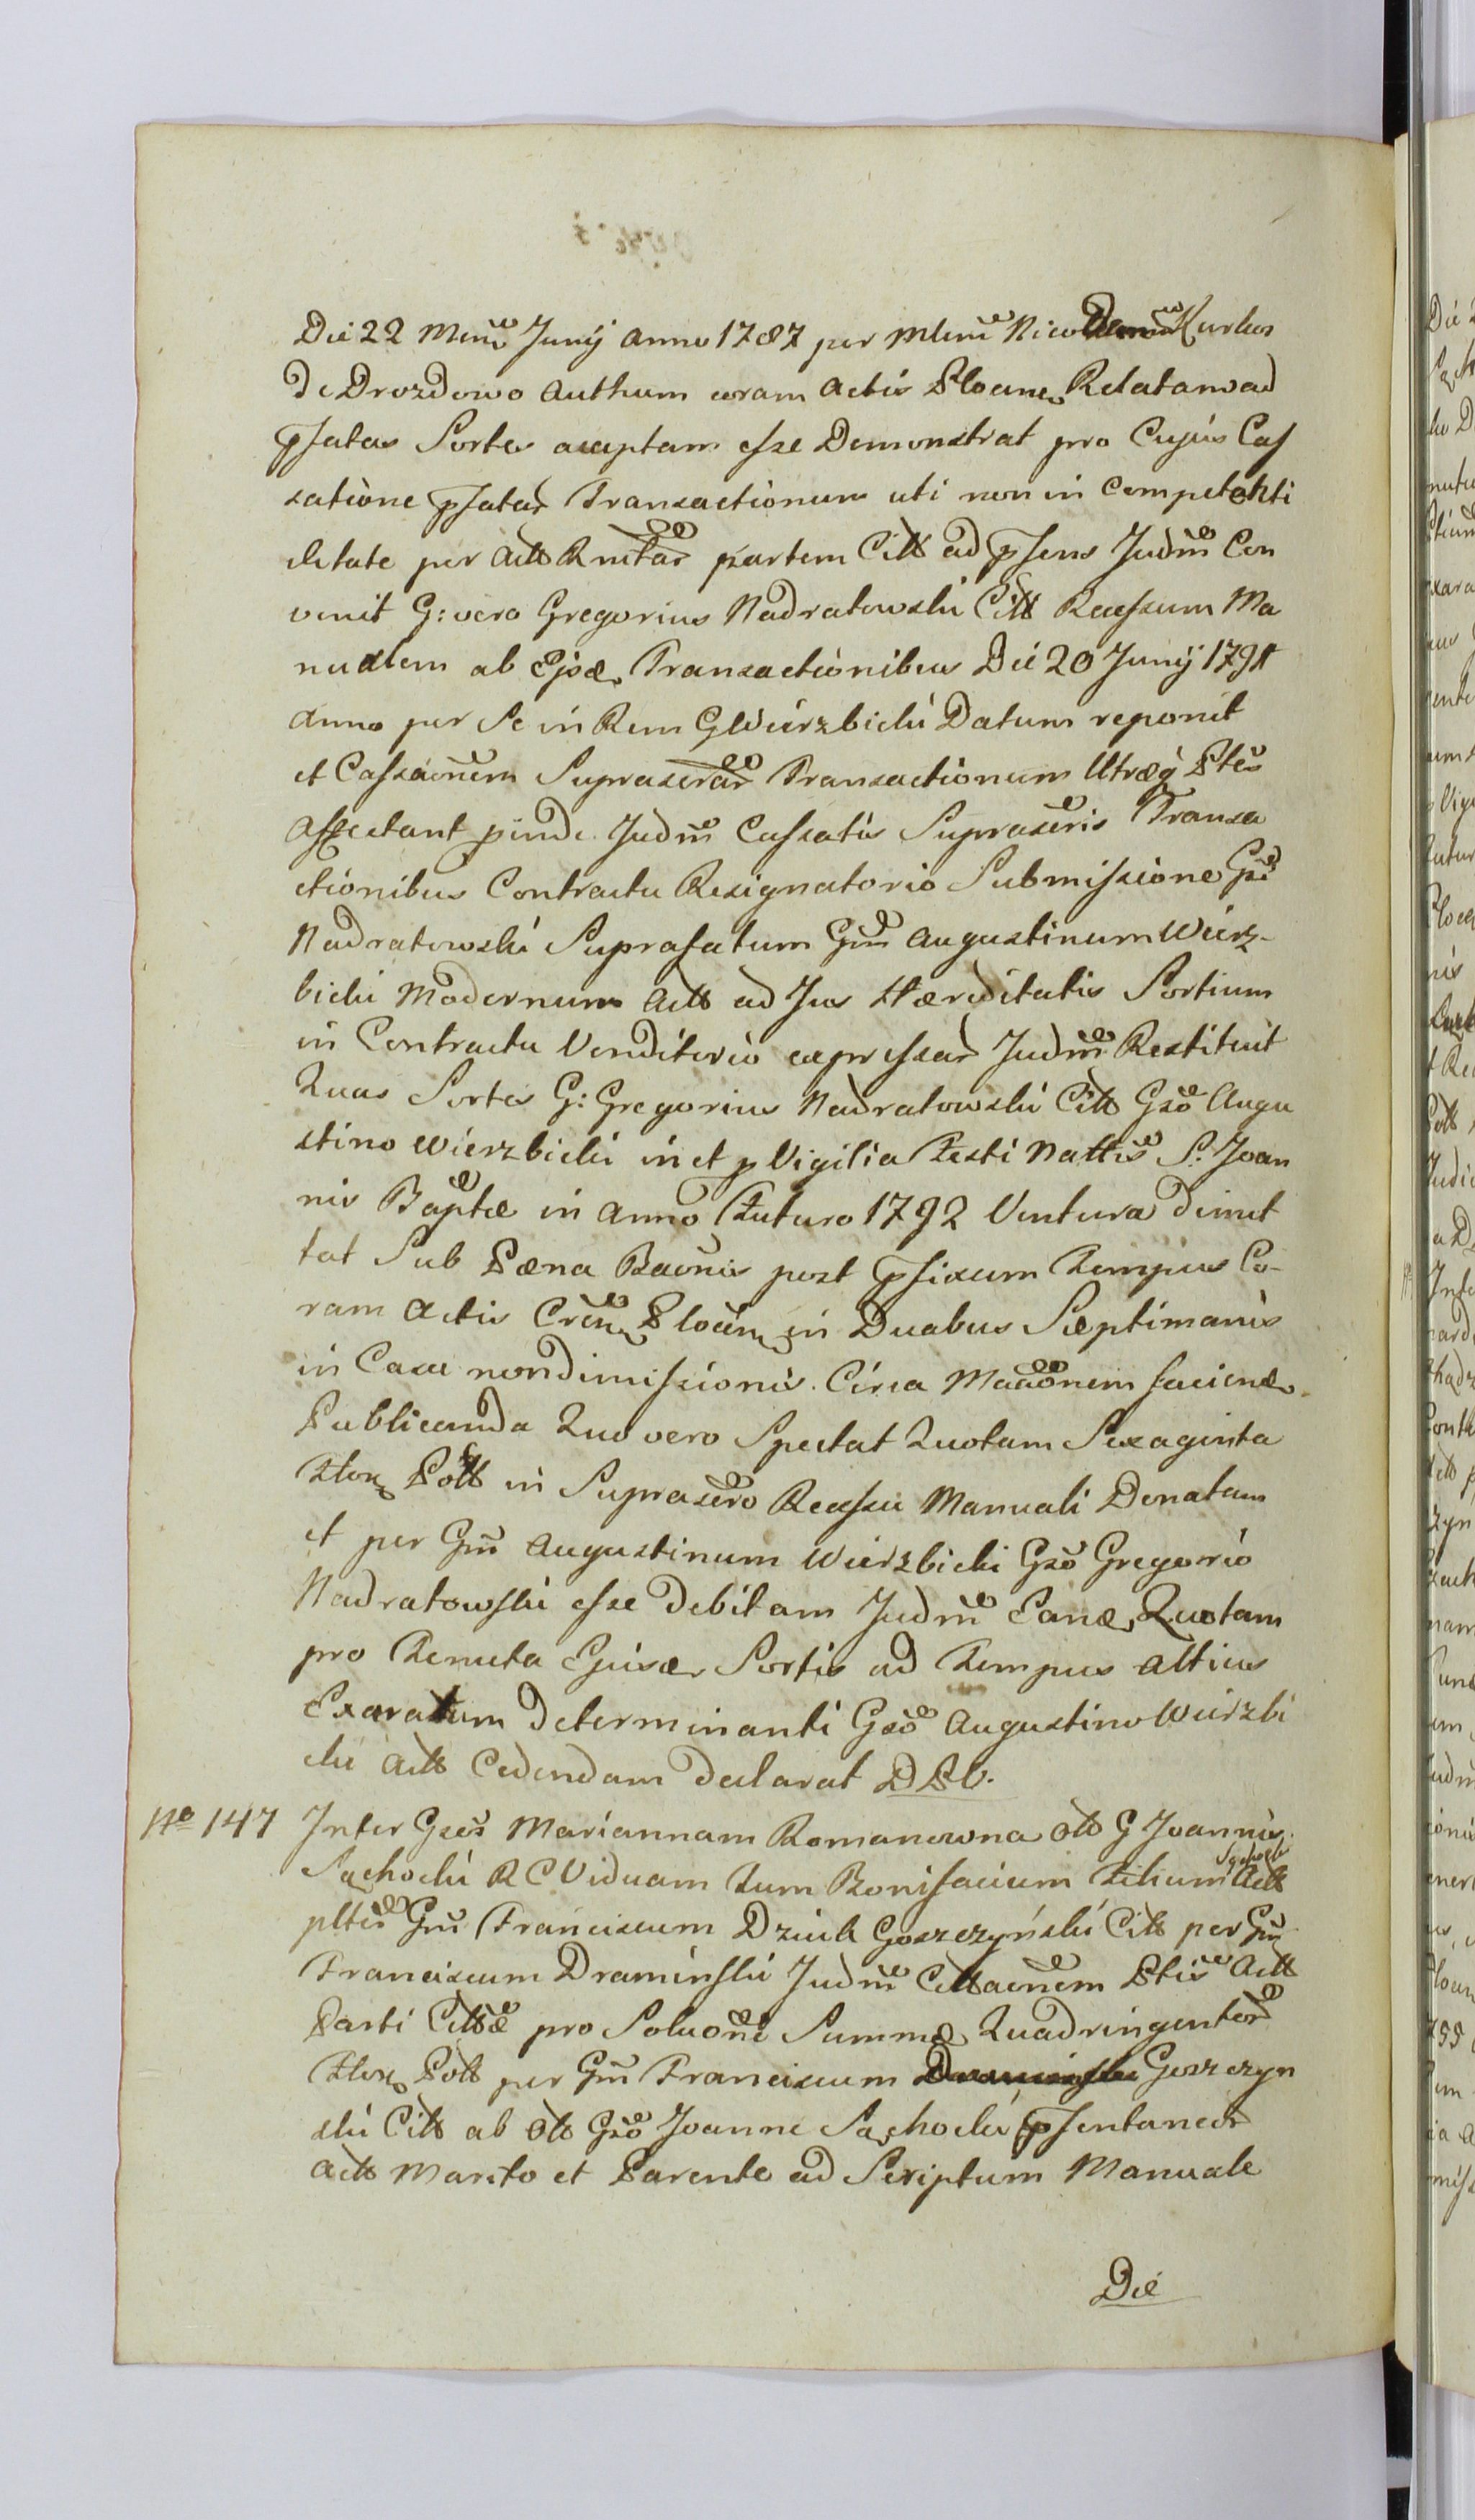 Die 22 Mens Junÿ Anno 1787 per Mlem Nicodemum Kurkus
de Drozdowo Authum coram Actis Plocen Relatam ad
pfatas Sortes acceptam esse Demonstrat pro Cujus Cas
satione pfatar Transactionum uti non in Competenti
ætate per Actt partem Citt ad pfens Judm Con
venit G: vero Gregorius Nadratowski Citt Recessum Ma
nualem ab Ejsæ Transactionibus Die 20 Junÿ 1791
Anno per Se in Rem G Wierzbicki Datum reponit
et Cassaonem Suprascrar Transactionum Utræq Ptes
Affectant pinde Judm Cassatis Suprascris Transa
ctionibus Contractu Resignatorio Submissione Gsi
Nadratowski Suprafatum Gm Augustinum Wierz-
bicki Modernum Actt ad Jus Hæreditatis Sortium
in Contractu Venditorio expressar Judm Restituit
Quas Sortes G: Gregorius Nadratowski Citt Gso Augu
stino Wierzbicki in et p Vigilia Festi Nattis S: Joan
nis Baptæ in Anno Futuro 1792 Ventura dimit
tat Sub Pæna Baonis post pfixum Tempus Co-
ram Actis Cren Plocen in Duabus Septimanis
in Casu nondimissionis. Circa Macaonem faciend
Publicanda Quo vero Spectat Quotam Sexaginta
Flor Poll in Suprascro Recessu Manuali Donatam
et per Gm Augustinum Wierzbicki Gso Gregorio
Nadratowski esse debitam Judm Eand Quotam
pro Tenuta Ejusd Sortis ad Tempus altius
Exaratum determinanti Gso Augustino Wierzbi
cki Actt Cedendam declarat DPV.
No 147 Inter Gses Mariannam Romanowna olt G Joannis
Sąchocki R C Viduam tum Bonifacium Filium Sąchocki Actt
pltes Gm Franciscum Dziek Goszczyński Citt per Gm
Franciscum Draminski Judm Cittaonem Ptis Actt
Parti Cittæ pro Soluone Summæ Quadringentor
Flor Poll per Gm Franciscum Draminski Goszczyn
ski Citt ab olt Gso Joanne Sąchocki psentaneor
Actt Marito et Parente ad Scriptum Manuale
Die